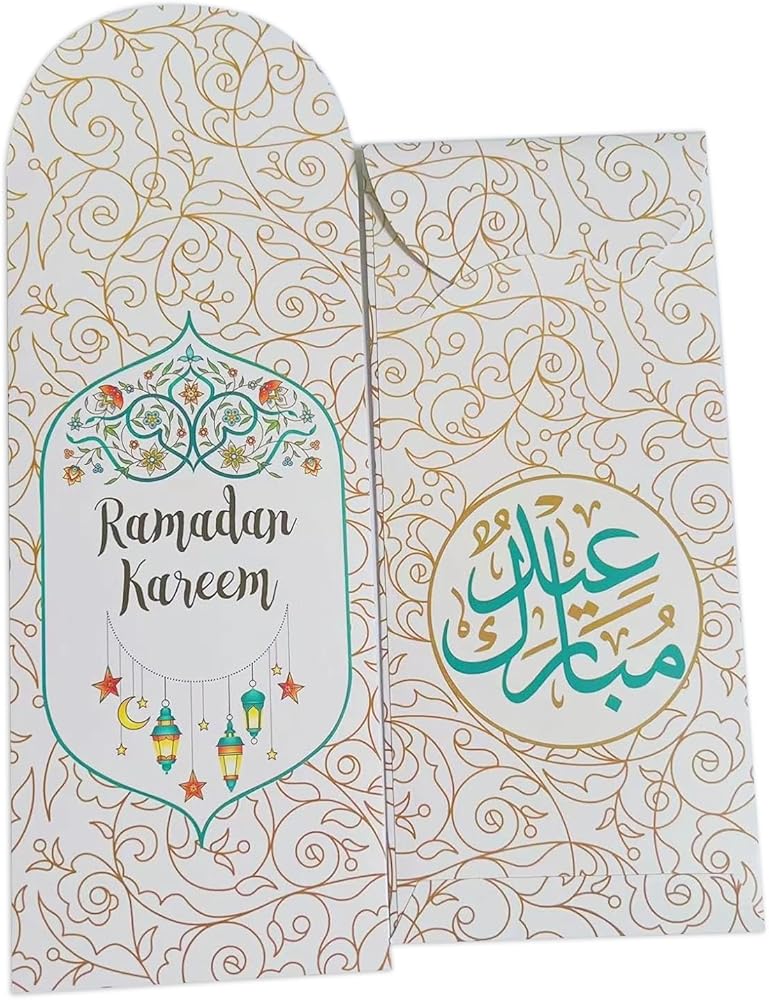 Ramadan
Kareem
عيد
مبارك